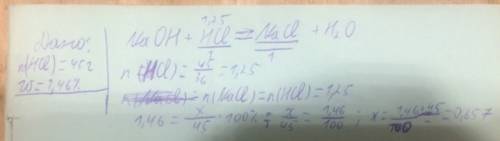 Дано:
n(HCl)=45г
W=1,46%
1,25
NaOH + HCl = NaCl + H₂O
1 1
n(HCl) = 45/36 = 1,25
n(NaCl) = n(HCl) = 1,25
1,46 = x/45 · 100% ; x/45 = 1,46/100 ; x = 1,46*45/100 = 0,657